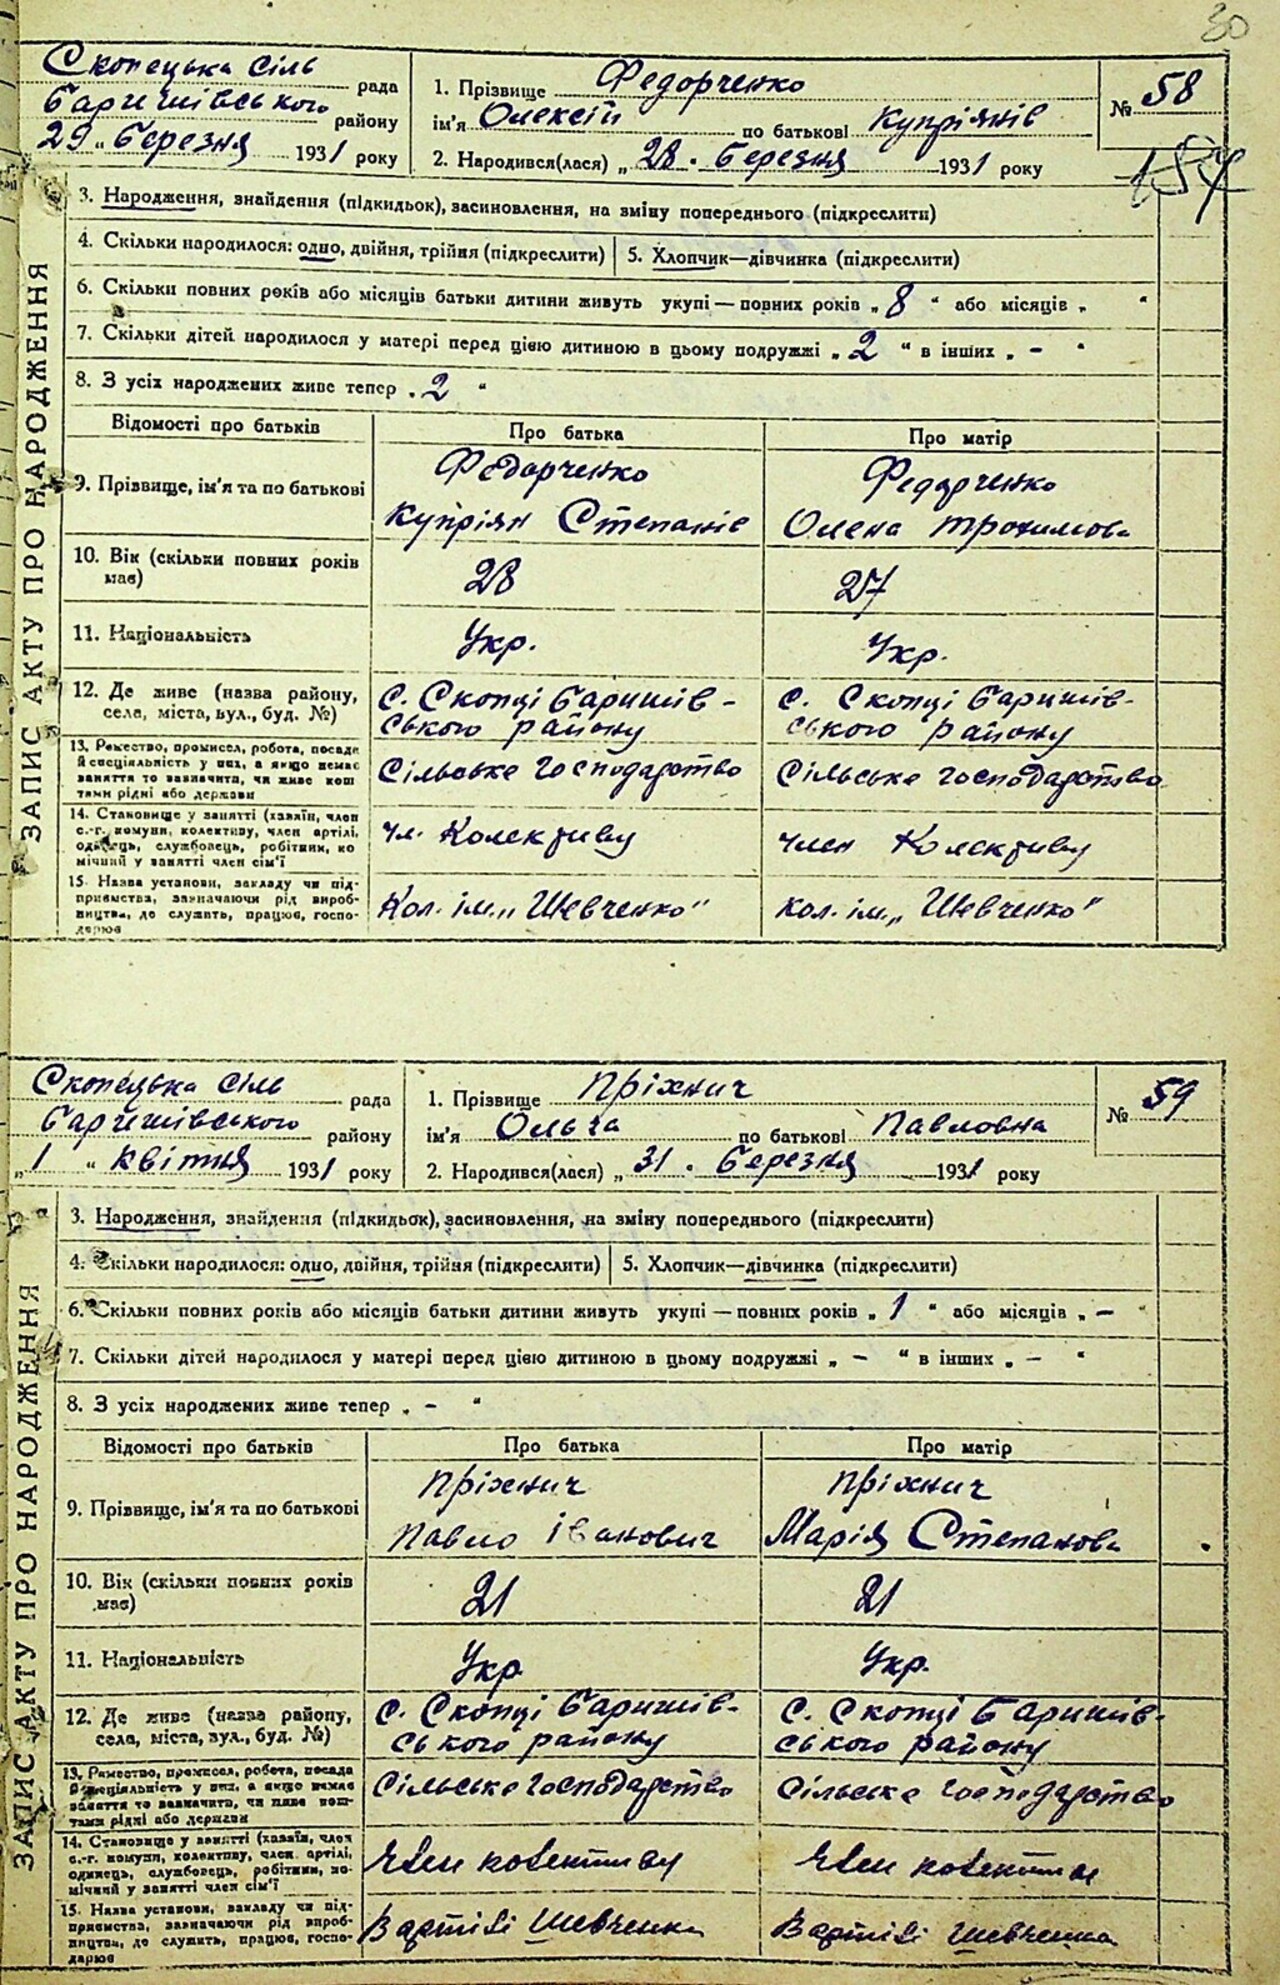 30
Скопецька сіль рада
Баришівського району
29 „ Березня 1931 року
1. Прізвище Федорченко
ім'я Олексій по батькові Купріянів
2. Народився(лася) „ 28 . Березня 1931 року
№ 58
157
ЗАПИС АКТУ ПРО НАРОДЖЕННЯ
3. Народження, знайдення (підкидьок), засиновлення, на зміну попереднього (підкреслити)
4. Скільки народилося: одно, двійня, трійня (підкреслити) 5. Хлопчик—дівчинка (підкреслити)
6. Скільки повних років або місяців батьки дитини живуть укупі — повних років „ 8 “ або місяців „ “
7. Скільки дітей народилося у матері перед цією дитиною в цьому подружжі „ 2 “ в інших „ – “
8. З усіх народжених живе тепер „ 2 “
Відомості про батьків Про батька Про матір
9. Прізвище, ім'я та по батькові Федорченко Купріян Степанів Федорченко Олена Трохимова
10. Вік (скільки повних років має) 28 27
11. Національність Укр. Укр.
12. Де живе (назва району, села, міста, вул., буд. №) с. Скопці Баришівського району с. Скопці Баришівського району
13. Ремество, промисел, робота, посада й спеціальність у них, а якщо немає заняття то зазначити, чи живе коштами рідні або держави Сільське господарство Сільське господарство
14. Становище у занятті (хазяїн, член с.-г. комуни, колективу, член артілі, одинець, службовець, робітник, помічний у занятті член сім'ї чл. Колективу член Колективу
15. Назва установи, закладу чи підприємства, зазначаючи рід виробництва, де служить, працює, господарює Кол. ім. „Шевченко" Кол. ім. „Шевченко"
Скопецька сіль рада
Баришівського району
„ 1 “ Квітня 1931 року
1. Прізвище Пріхнич
ім'я Ольга по батькові Павловна
2. Народився(лася) „ 31 . Березня 1931 року
№ 59
ЗАПИС АКТУ ПРО НАРОДЖЕННЯ
3. Народження, знайдення (підкидьок), засиновлення, на зміну попереднього (підкреслити)
4. Скільки народилося: одно, двійня, трійня (підкреслити) 5. Хлопчик—дівчинка (підкреслити)
6. Скільки повних років або місяців батьки дитини живуть укупі — повних років „ 1 “ або місяців „ – “
7. Скільки дітей народилося у матері перед цією дитиною в цьому подружжі „ – “ в інших „ – “
8. З усіх народжених живе тепер „ – “
Відомості про батьків Про батька Про матір
9. Прізвище, ім'я та по батькові Пріхнич Павло Іванович Пріхнич Марія Степанова
10. Вік (скільки повних років має) 21 21
11. Національність Укр Укр.
12. Де живе (назва району, села, міста, вул., буд. №) с. Скопці Баришівського району с. Скопці Баришівського району
13. Ремество, промисел, робота, посада й спеціальність у них, а якщо немає заняття то зазначити, чи живе коштами рідні або держави Сільське господарство Сільське господарство
14. Становище у занятті (хазяїн, член с.-г. комуни, колективу, член артілі, одинець, службовець, робітник, помічний у занятті член сім'ї Член колективу Член колективу
15. Назва установи, закладу чи підприємства, зазначаючи рід виробництва, де служить, працює, господарює В артілі Шевченка В артілі Шевченка